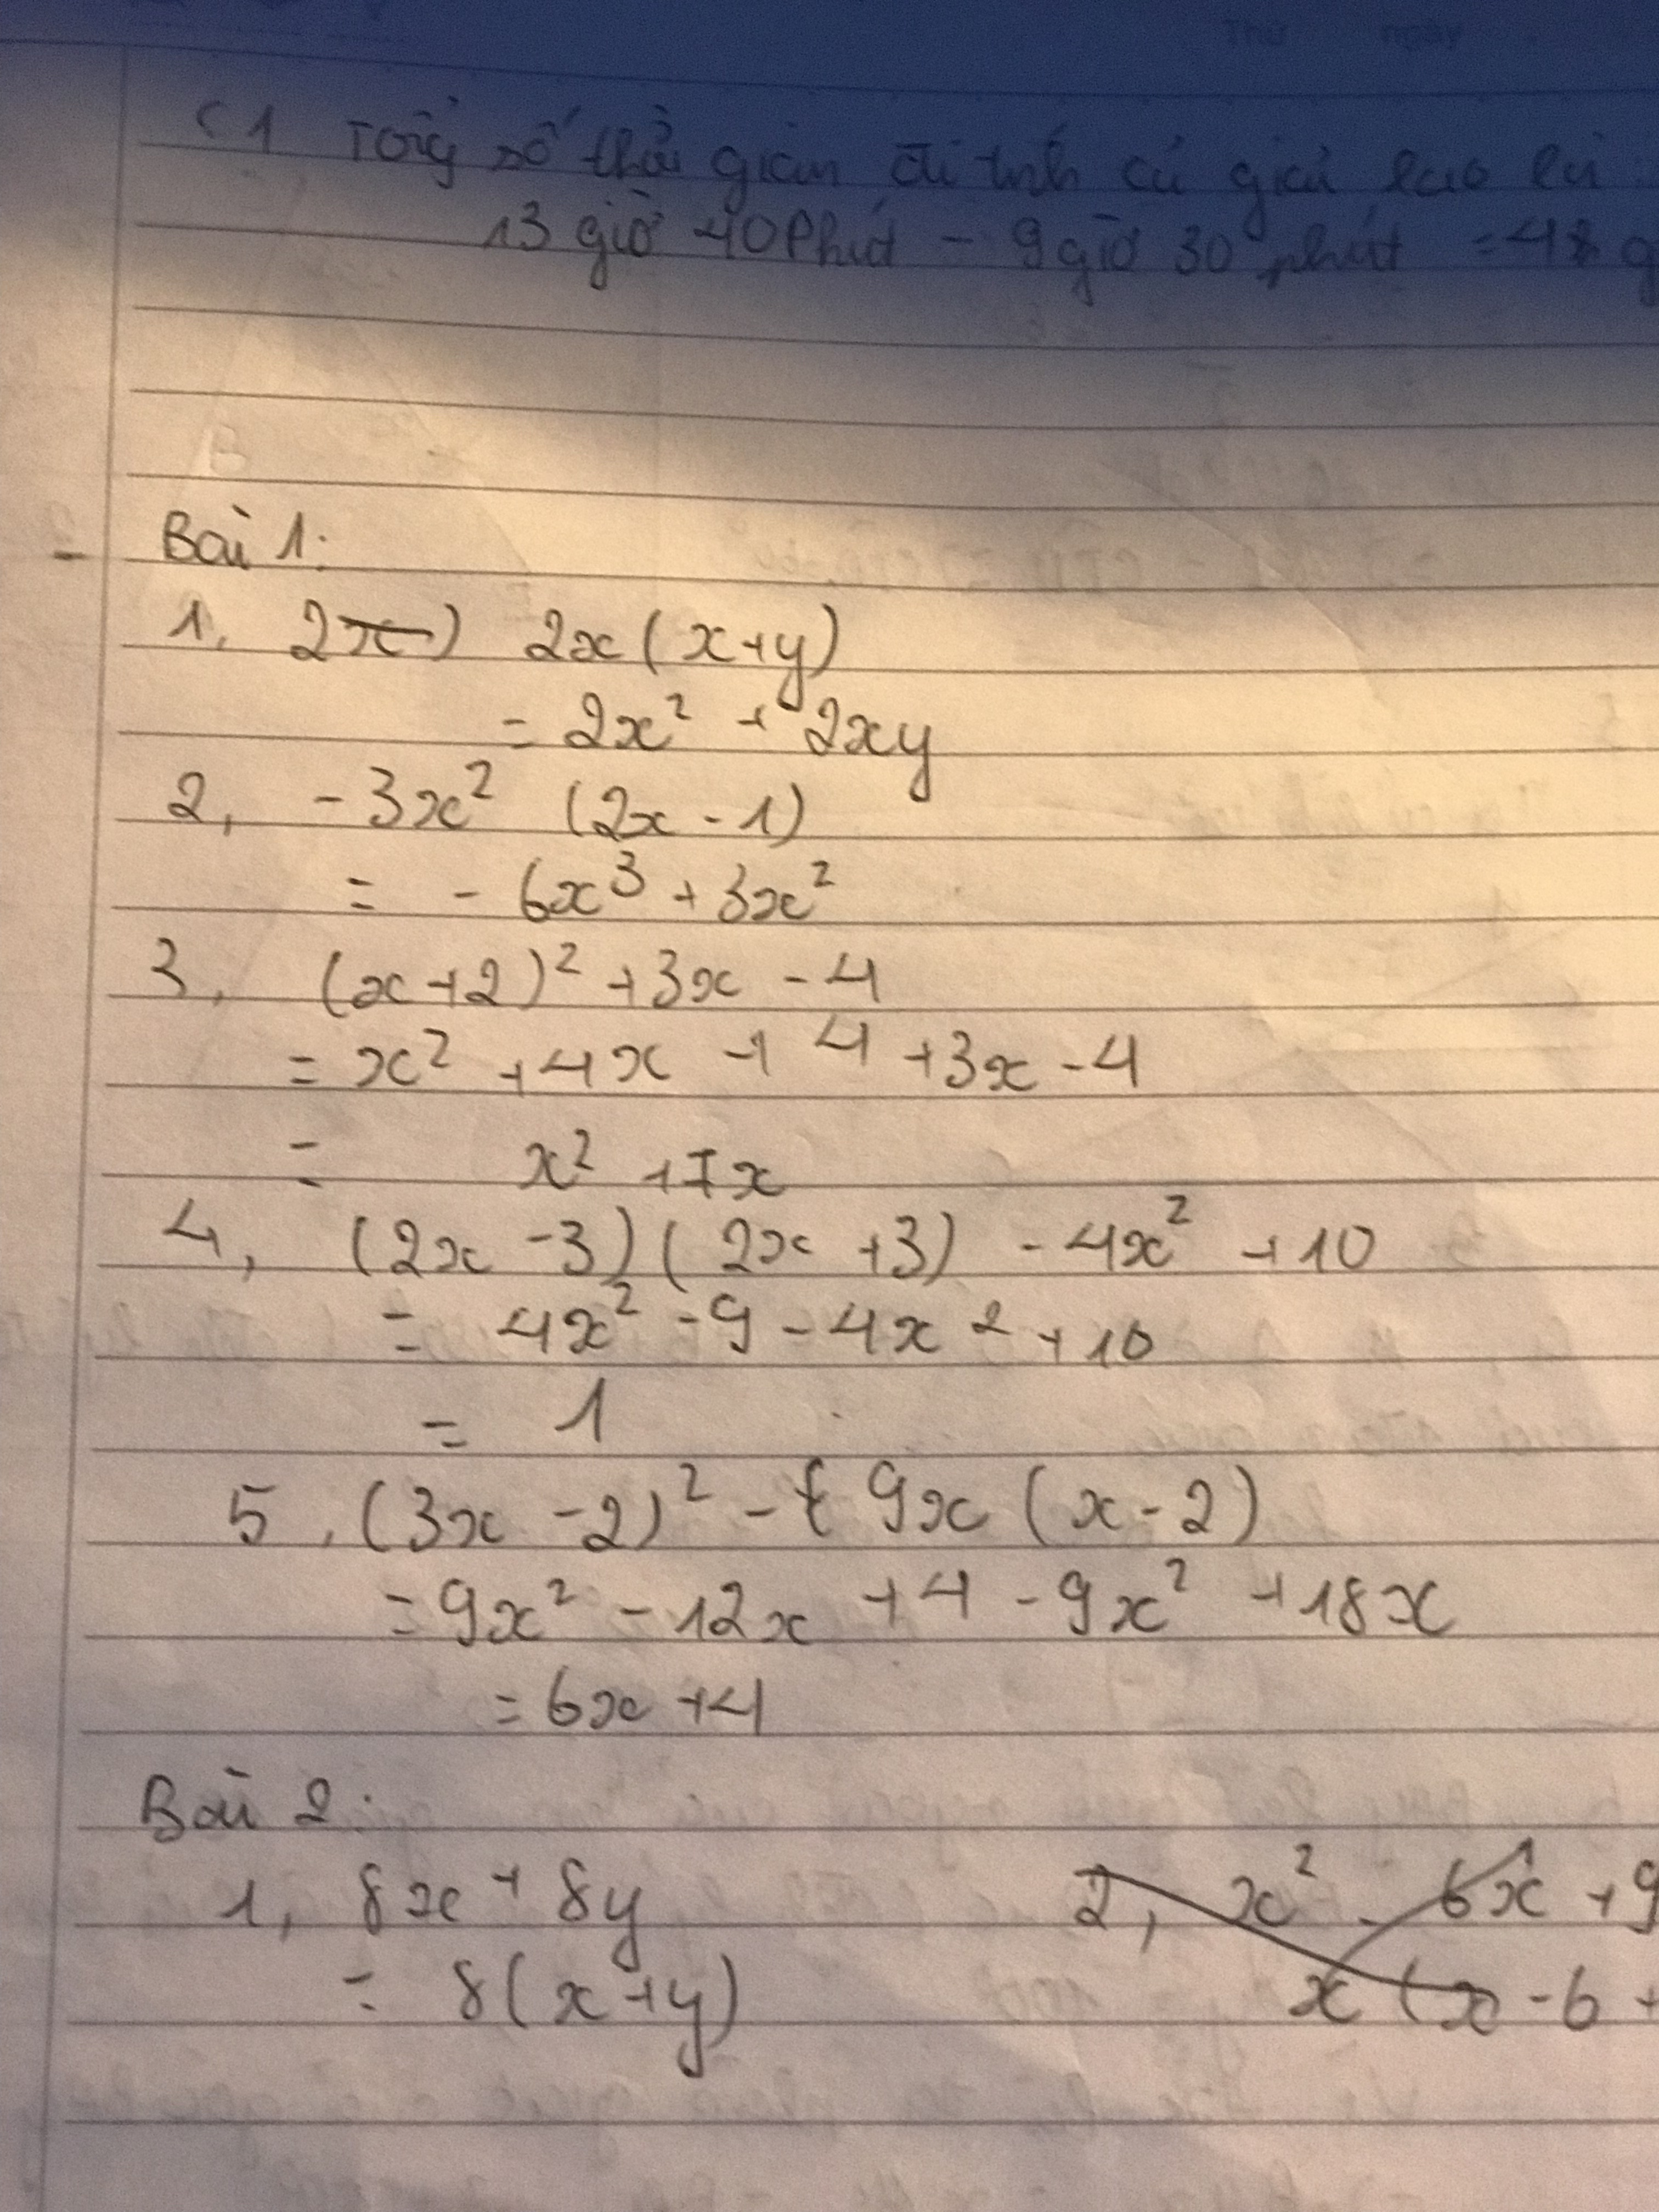 Thứ ngày
C1 Tổng số thời gian đi tính cả giải lao là :
13 giờ 40 Phút - 9 giờ 30 phút = 4 g
Bài 1:
1, 2x) 2x(x+y)
= 2x² + 2xy
2, -3x² (2x - 1)
= - 6x³ + 3x²
3, (x+2)² + 3x - 4
= x² + 4x + 4 + 3x - 4
= x² + 7x
4, (2x - 3)(2x + 3) - 4x² + 10
= 4x² - 9 - 4x² + 10
= 1
5, (3x - 2)² - 9x (x - 2)
= 9x² - 12x + 4 - 9x² + 18x
= 6x + 4
Bài 2:
1, 8x + 8y 2, x² - 6x + 9
= 8(x+y) x (x - 6 +